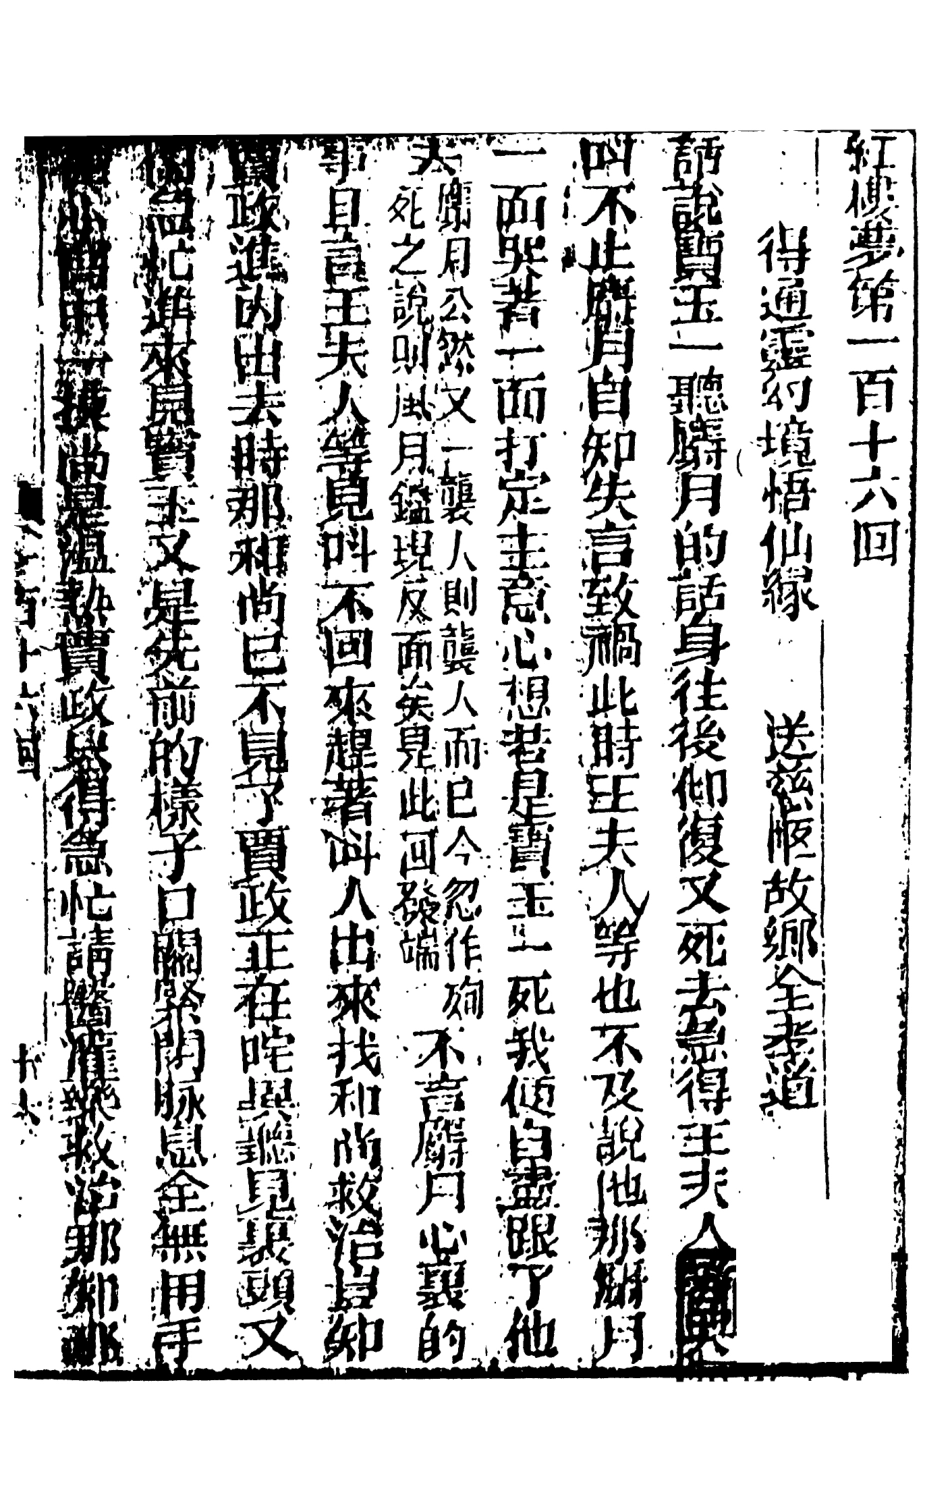 紅樓夢第一百十六回
得通靈幻境悟仙緣　送慈柩故鄉全孝道
話說寶玉一聽麝月的話身往後仰復又死去急得王夫人
叫不止麝月自知失言致禍此時王夫人等也不及說他那麝月
一面哭著一面打定主意心想若是寶玉一死我便自盡跟了他
去
麝月公然又一襲人則襲人而已今忽作殉
死之說則麝月鑑現反面矣是此回發端
不言麝月心裏的
事且言王夫人等見叫不回來趕著叫人出來找和尚救治豈知
賈政進內出去時那和尚已不見了賈政正在咤異聽見裏頭又
鬧急忙進來見寶玉又是先前的樣子口關緊閉脈息全無用手
在心窩中一摸尚是溫熱賈政只得急忙請醫灌藥救治那知那
百十六回